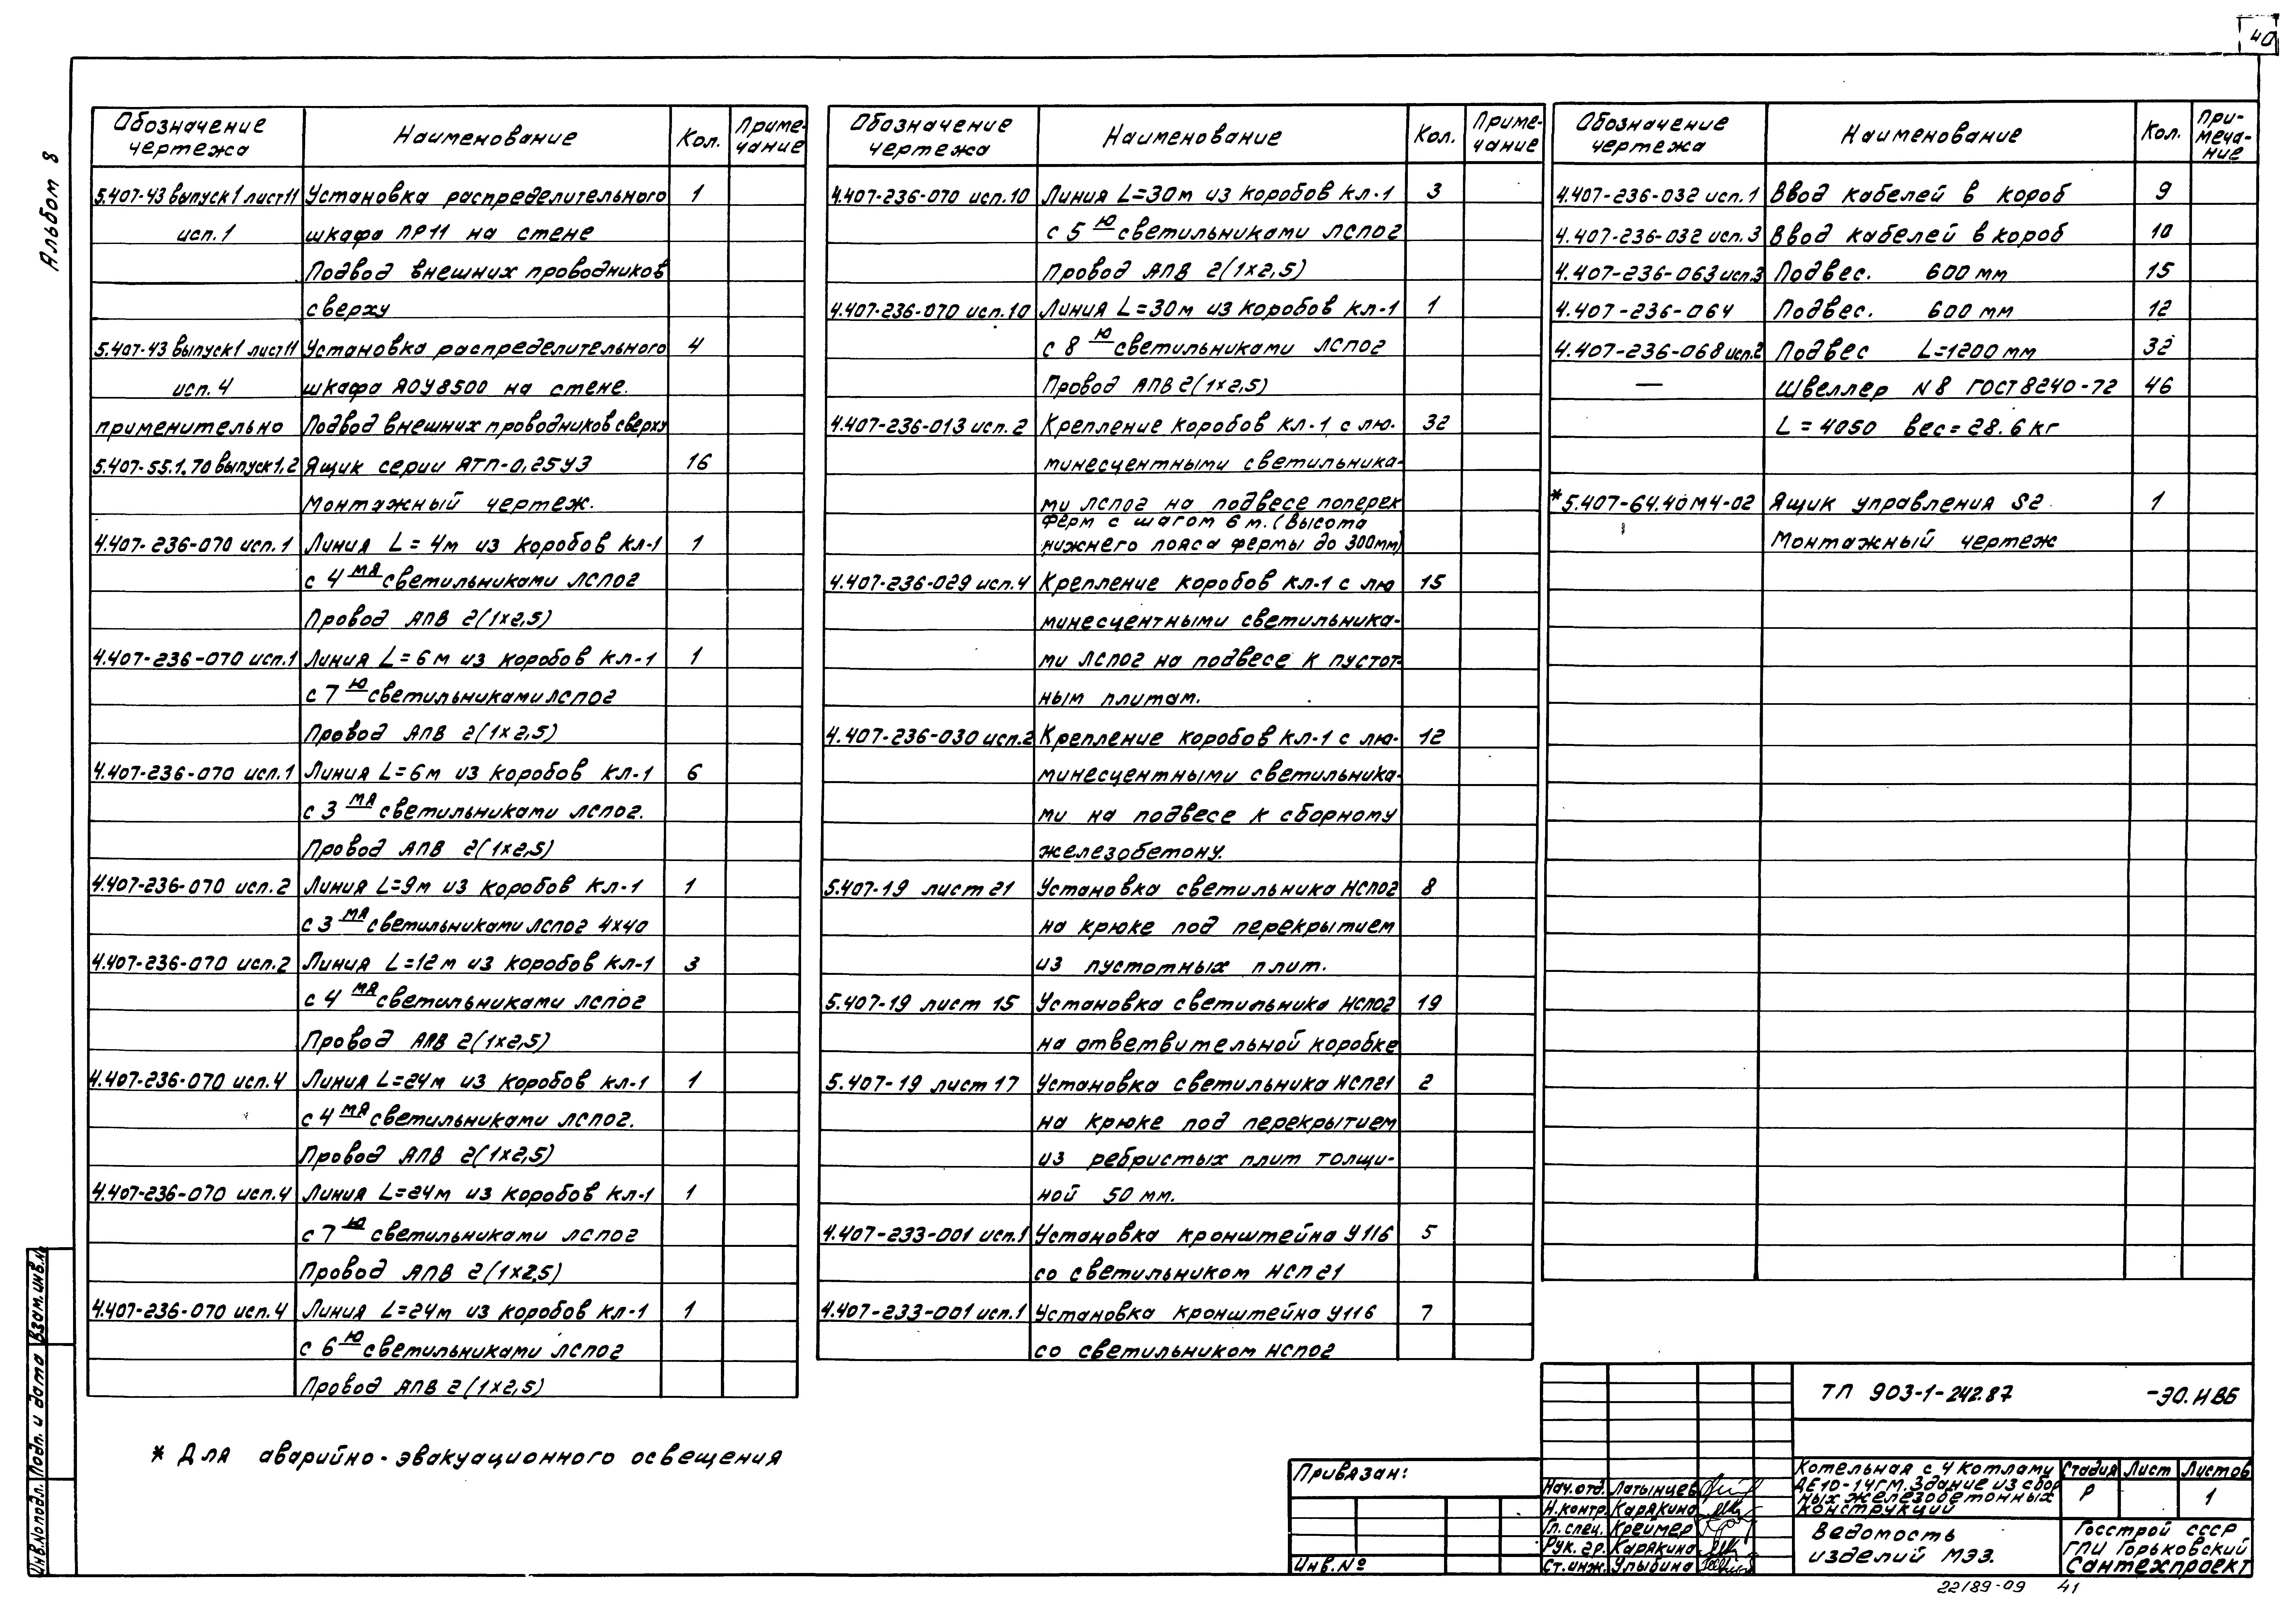 40
Альбом 8
Обозначение чертежа Наименование Кол. Приме-чание
5.407-43 выпуск 1 лист 11 Установка распределительного 1
исп. 1 шкафа ПР11 на стене
Подвод внешних проводников
сверху
5.407-43 выпуск 1 лист 11 Установка распределительного 4
исп. 4 шкафа ЯОУ8500 на стене.
применительно Подвод внешних проводников сверху
5.407-55.1.70 выпуск 1,2 Ящик серии ЯТП-0,25УЗ 16
Монтажный чертеж.
4.407-236-070 исп. 1 Линия L=4м из коробов КЛ-1 1
с 4 мя светильниками ЛСП02
Провод АПВ 2(1×2,5)
4.407-236-070 исп. 1 Линия L=6м из коробов КЛ-1 1
с 7 ю светильниками ЛСП02
Провод АПВ 2(1×2,5)
4.407-236-070 исп. 1 Линия L=6м из коробов КЛ-1 6
с 3 мя светильниками ЛСП02.
Провод АПВ 2(1×2,5)
4.407-236-070 исп. 2 Линия L=9м из коробов КЛ-1 1
с 3 мя светильниками ЛСП02 4×40
4.407-236-070 исп. 2 Линия L=12м из коробов КЛ-1 3
с 4 мя светильниками ЛСП02
Провод АПВ 2(1×2,5)
4.407-236-070 исп. 4 Линия L=24м из коробов КЛ-1 1
с 4 мя светильниками ЛСП02.
Провод АПВ 2(1×2,5)
4.407-236-070 исп. 4 Линия L=24м из коробов КЛ-1 1
с 7 ю светильниками ЛСП02
Провод АПВ 2(1×2,5)
4.407-236-070 исп. 4 Линия L=24м из коробов КЛ-1 1
с 6 ю светильниками ЛСП02
Провод АПВ 2(1×2,5)
Обозначение чертежа Наименование Кол. Приме-чание
4.407-236-070 исп. 10 Линия L=30м из коробов КЛ-1 3
с 5 ю светильниками ЛСП02
Провод АПВ 2(1×2,5)
4.407-236-070 исп. 10 Линия L=30м из коробов КЛ-1 1
с 8 ю светильниками ЛСП02
Провод АПВ 2(1×2,5)
4.407-236-013 исп. 2 Крепление коробов КЛ-1 с лю- 32
минесцентными светильника-
ми ЛСП02 на подвесе поперек
ферм с шагом 6 м. (высота
нижнего пояса фермы до 300мм)
4.407-236-029 исп. 4 Крепление коробов КЛ-1 с лю 15
минесцентными светильника-
ми ЛСП02 на подвесе к пустот-
ным плитам.
4.407-236-030 исп. 2 Крепление коробов КЛ-1 с лю- 12
минесцентными светильника-
ми на подвесе к сборному
железобетону.
5.407-19 лист 21 Установка светильника НСП02 8
на крюке под перекрытием
из пустотных плит.
5.407-19 лист 15 Установка светильника НСП02 19
на ответвительной коробке
5.407-19 лист 17 Установка светильника НСП21 2
на крюке под перекрытием
из ребристых плит толщи-
ной 50 мм.
4.407-233-001 исп. 1 Установка кронштейна У116 5
со светильником НСП21
4.407-233-001 исп. 1 Установка кронштейна У116 7
со светильником НСП02
Обозначение чертежа Наименование Кол. При-меча-ние
4.407-236-032 исп. 1 Ввод кабелей в короб 9
4.407-236-032 исп. 3 Ввод кабелей в короб 10
4.407-236-063 исп. 3 Подвес. 600 мм 15
4.407-236-064 Подвес. 600 мм 12
4.407-236-068 исп. 2 Подвес L=1200 мм 32
— Швеллер N 8 ГОСТ 8240-72 46
L=4050 вес=28.6 кг
* 5.407-64.40М4-02 Ящик управления S2 1
Монтажный чертеж
* Для аварийно-эвакуационного освещения
Взам. инв. №
Подп. и дата
Инв. № подл.
Привязан:
Инв. №
Нач. отд. Латынцев
Н. контр. Карякина
Гл. спец. Креймер
Рук. гр. Карякина
Ст. инж. Улыбина
ТП 903-1-242.87 -ЭО.И ВБ
Котельная с 4 котлами
ДЕ10-14ГМ. Здание из сбор
ных железобетонных
конструкций
Стадия Лист Листов
Р 1
Ведомость
изделий МЭЗ.
Госстрой СССР
ГПИ Горьковский
Сантехпроект
22189-09 41